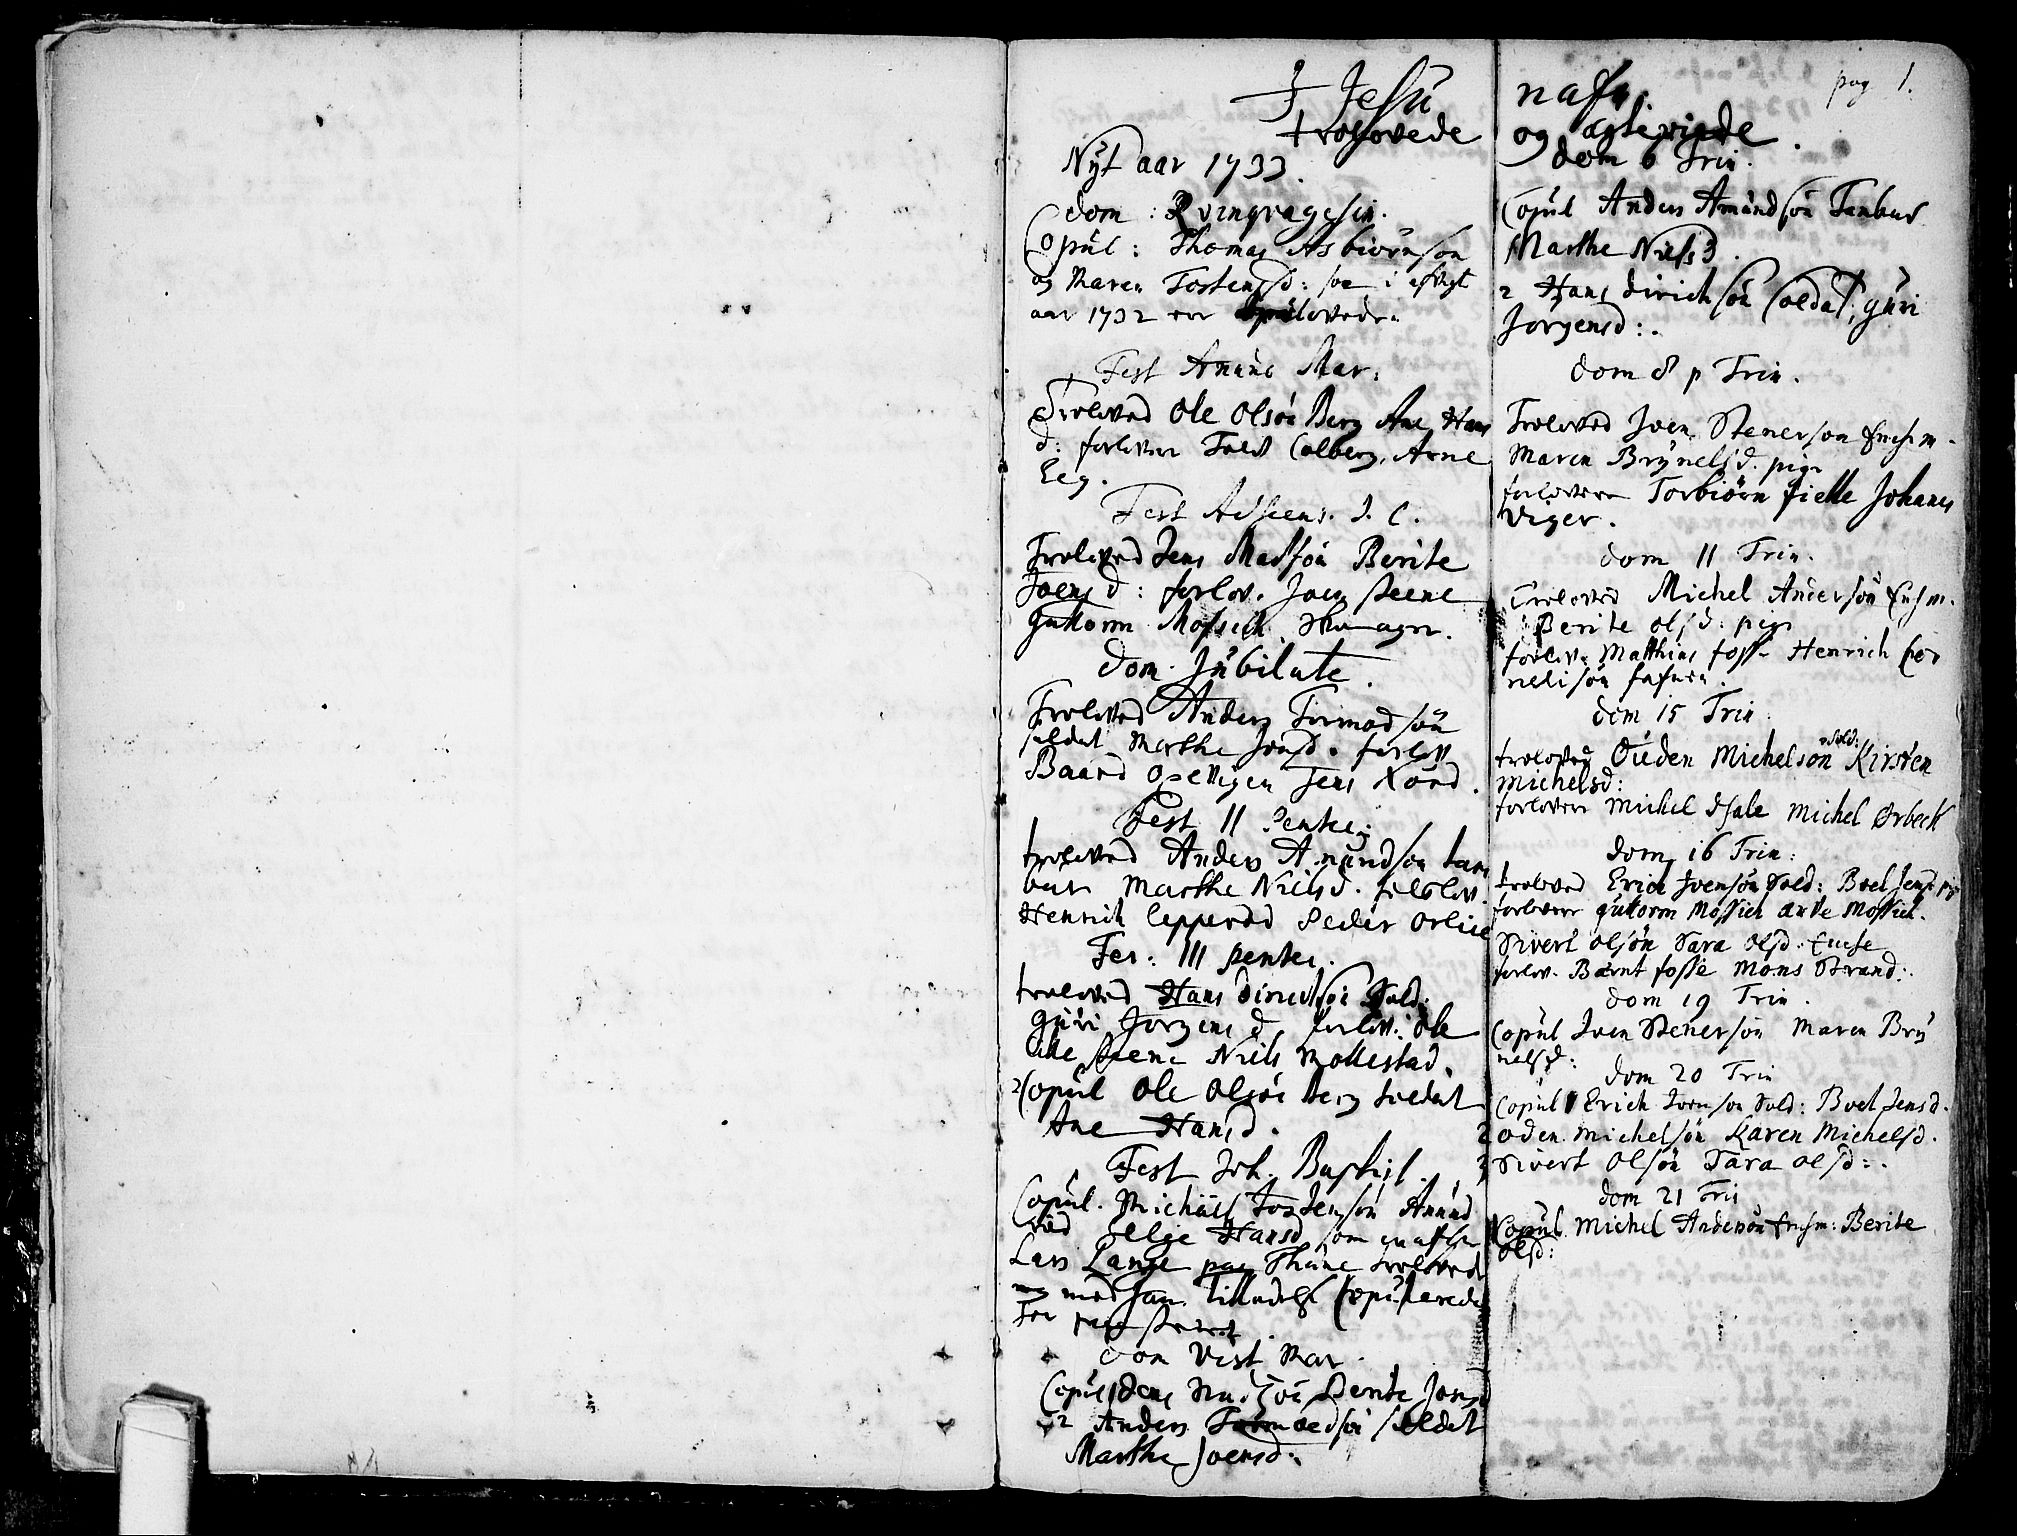 pag 1.
J Jesu nafn.
trolovede og ægteviede.
Nÿt aar 1733.
dom: Qvinqvagesin.
Copul: Thomas Asbiörnson
og Maren Tostensd: som i afvigt
aar 1732 er trolovede.
Fest Anunc Mar:
Troloved Ole Olsön Berg Ane Hans
d: forlover Colberg, Arne
Eeg.
Fest Adscens. J. C.
Troloved Jens Madsön Berite
Joensd: forlov. Joen Steene
Guttorm Mossich
dom. Jubilate.
Troloved Anders Tormodsön
soldat Marthe Jonsd. forlov
Baard Jens Nord.
Fest II Pentec:
troloved Anders Amundson tam
bur Marthe Nielsd. forlov.
Henrich Lepperød Peder Orlie
Fer: III pentec.
trolovet Hans Dirichsön Sold:
Guri Jorgensd. forlov: Ole
Steene Niels Mollestad.
2 Copul Ole Olsön Berg soldat
Ane Hansd.
Fest Joh. Baptist.
Copul. Michäel Tostensön Amund
rød Elge Hansd som
Lars Lange paa Thune trolovede
og med Tilladelse Copulerede

dom Visit Mar.
Copul Jens Madsön Berite Jonsd
2 Anders Tormoedsön soldat
Marthe Joensd.
dom 6 Trin.
Copul Anders Amundsön Tambur
Marthe Niels d.
2 Hans Dirichsön Soldat, Guri
Jorgensd:.
dom 8 p Trin.
Troloved Joen Stenerson Enchm.
Maren Brÿnelsd. pige
forlover Torbiörn fielle Johanes
Viger.
dom 11 Trin.
Troloved Michel Andersön Enchm.
Berite olsd. pige
forlov. Matthias foss Henrich Cor
nelisön
dom 15 Trin
troloved Ouden Michelsön Sold: Kirsten
Michelsd:
forlover Michel Michel Ørbeck
dom 16 Trin:
troloved Erich Joensön Sold: Boel Jensd pig
forlover Gutorm Mossich Arve Mossich.
Sivert olsön Sara olsd: Encke
forlov. Bærnt fosse Mons Strand:.
dom 19 Trin.
Copul Joen Stenersön Maren Brÿ
nelsd:
dom 20 Trin
Copul 1 Erich Joensön Sold: Boel Jensd.
2 Oden Michelsön Karen Michelsd.
3 Sivert Olsön Sara olsd:.
dom 21 Trin
Copul Michel Andersön Enchm: Berite
olsd: